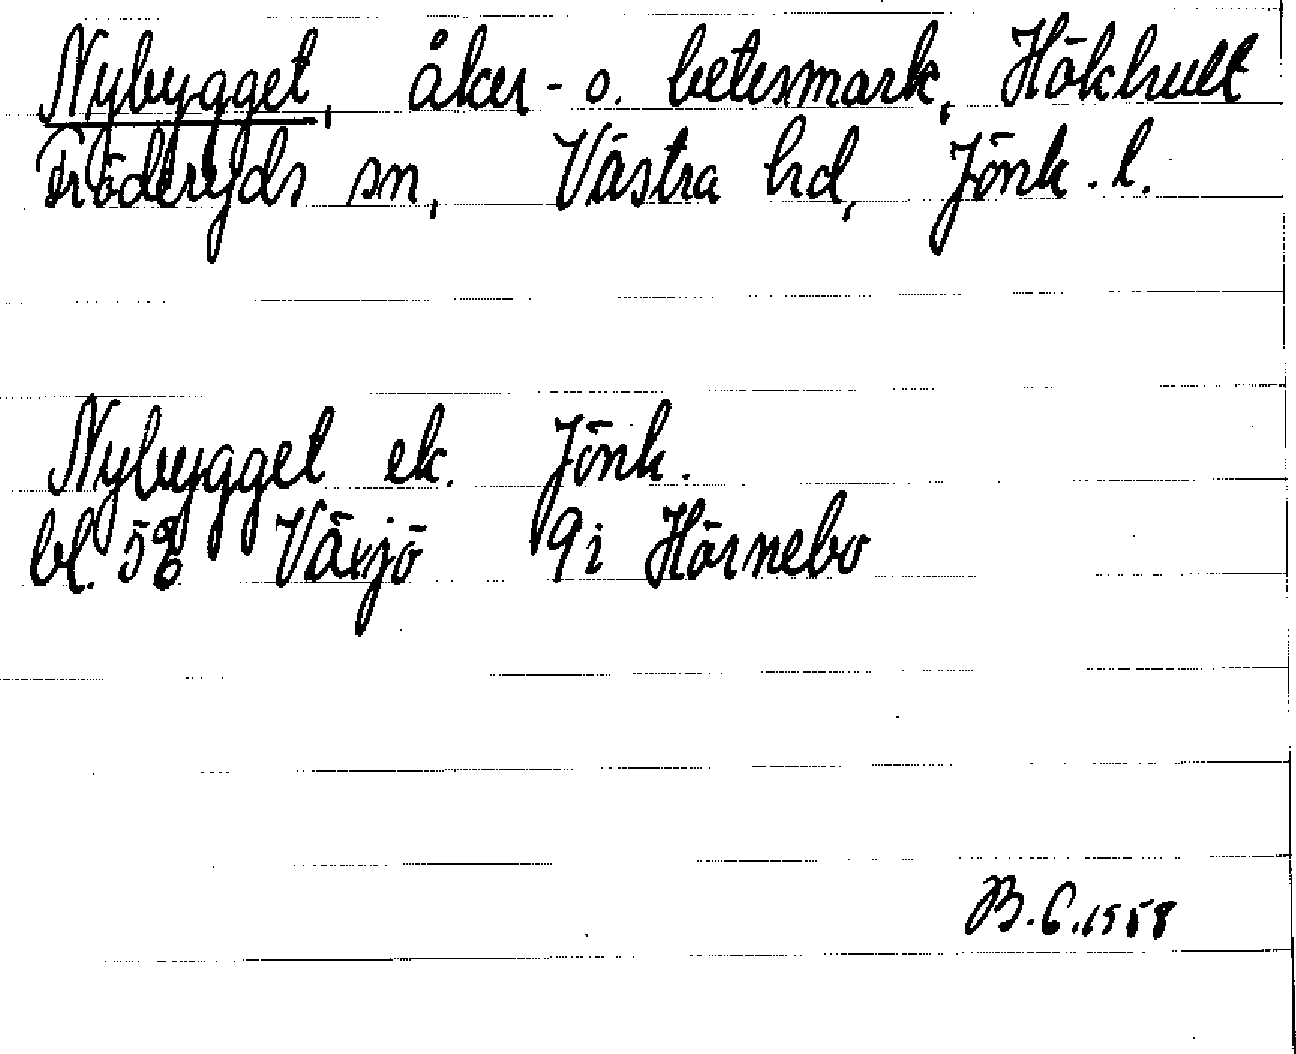 Nybygget, åker- o. betesmark, Hökhult
Fröderyds sn, Västra hd, Jönk. l.
Nybygget ek. Jönk.
bl. 58 Växjö 9i Hörnebo
B.C. 1958